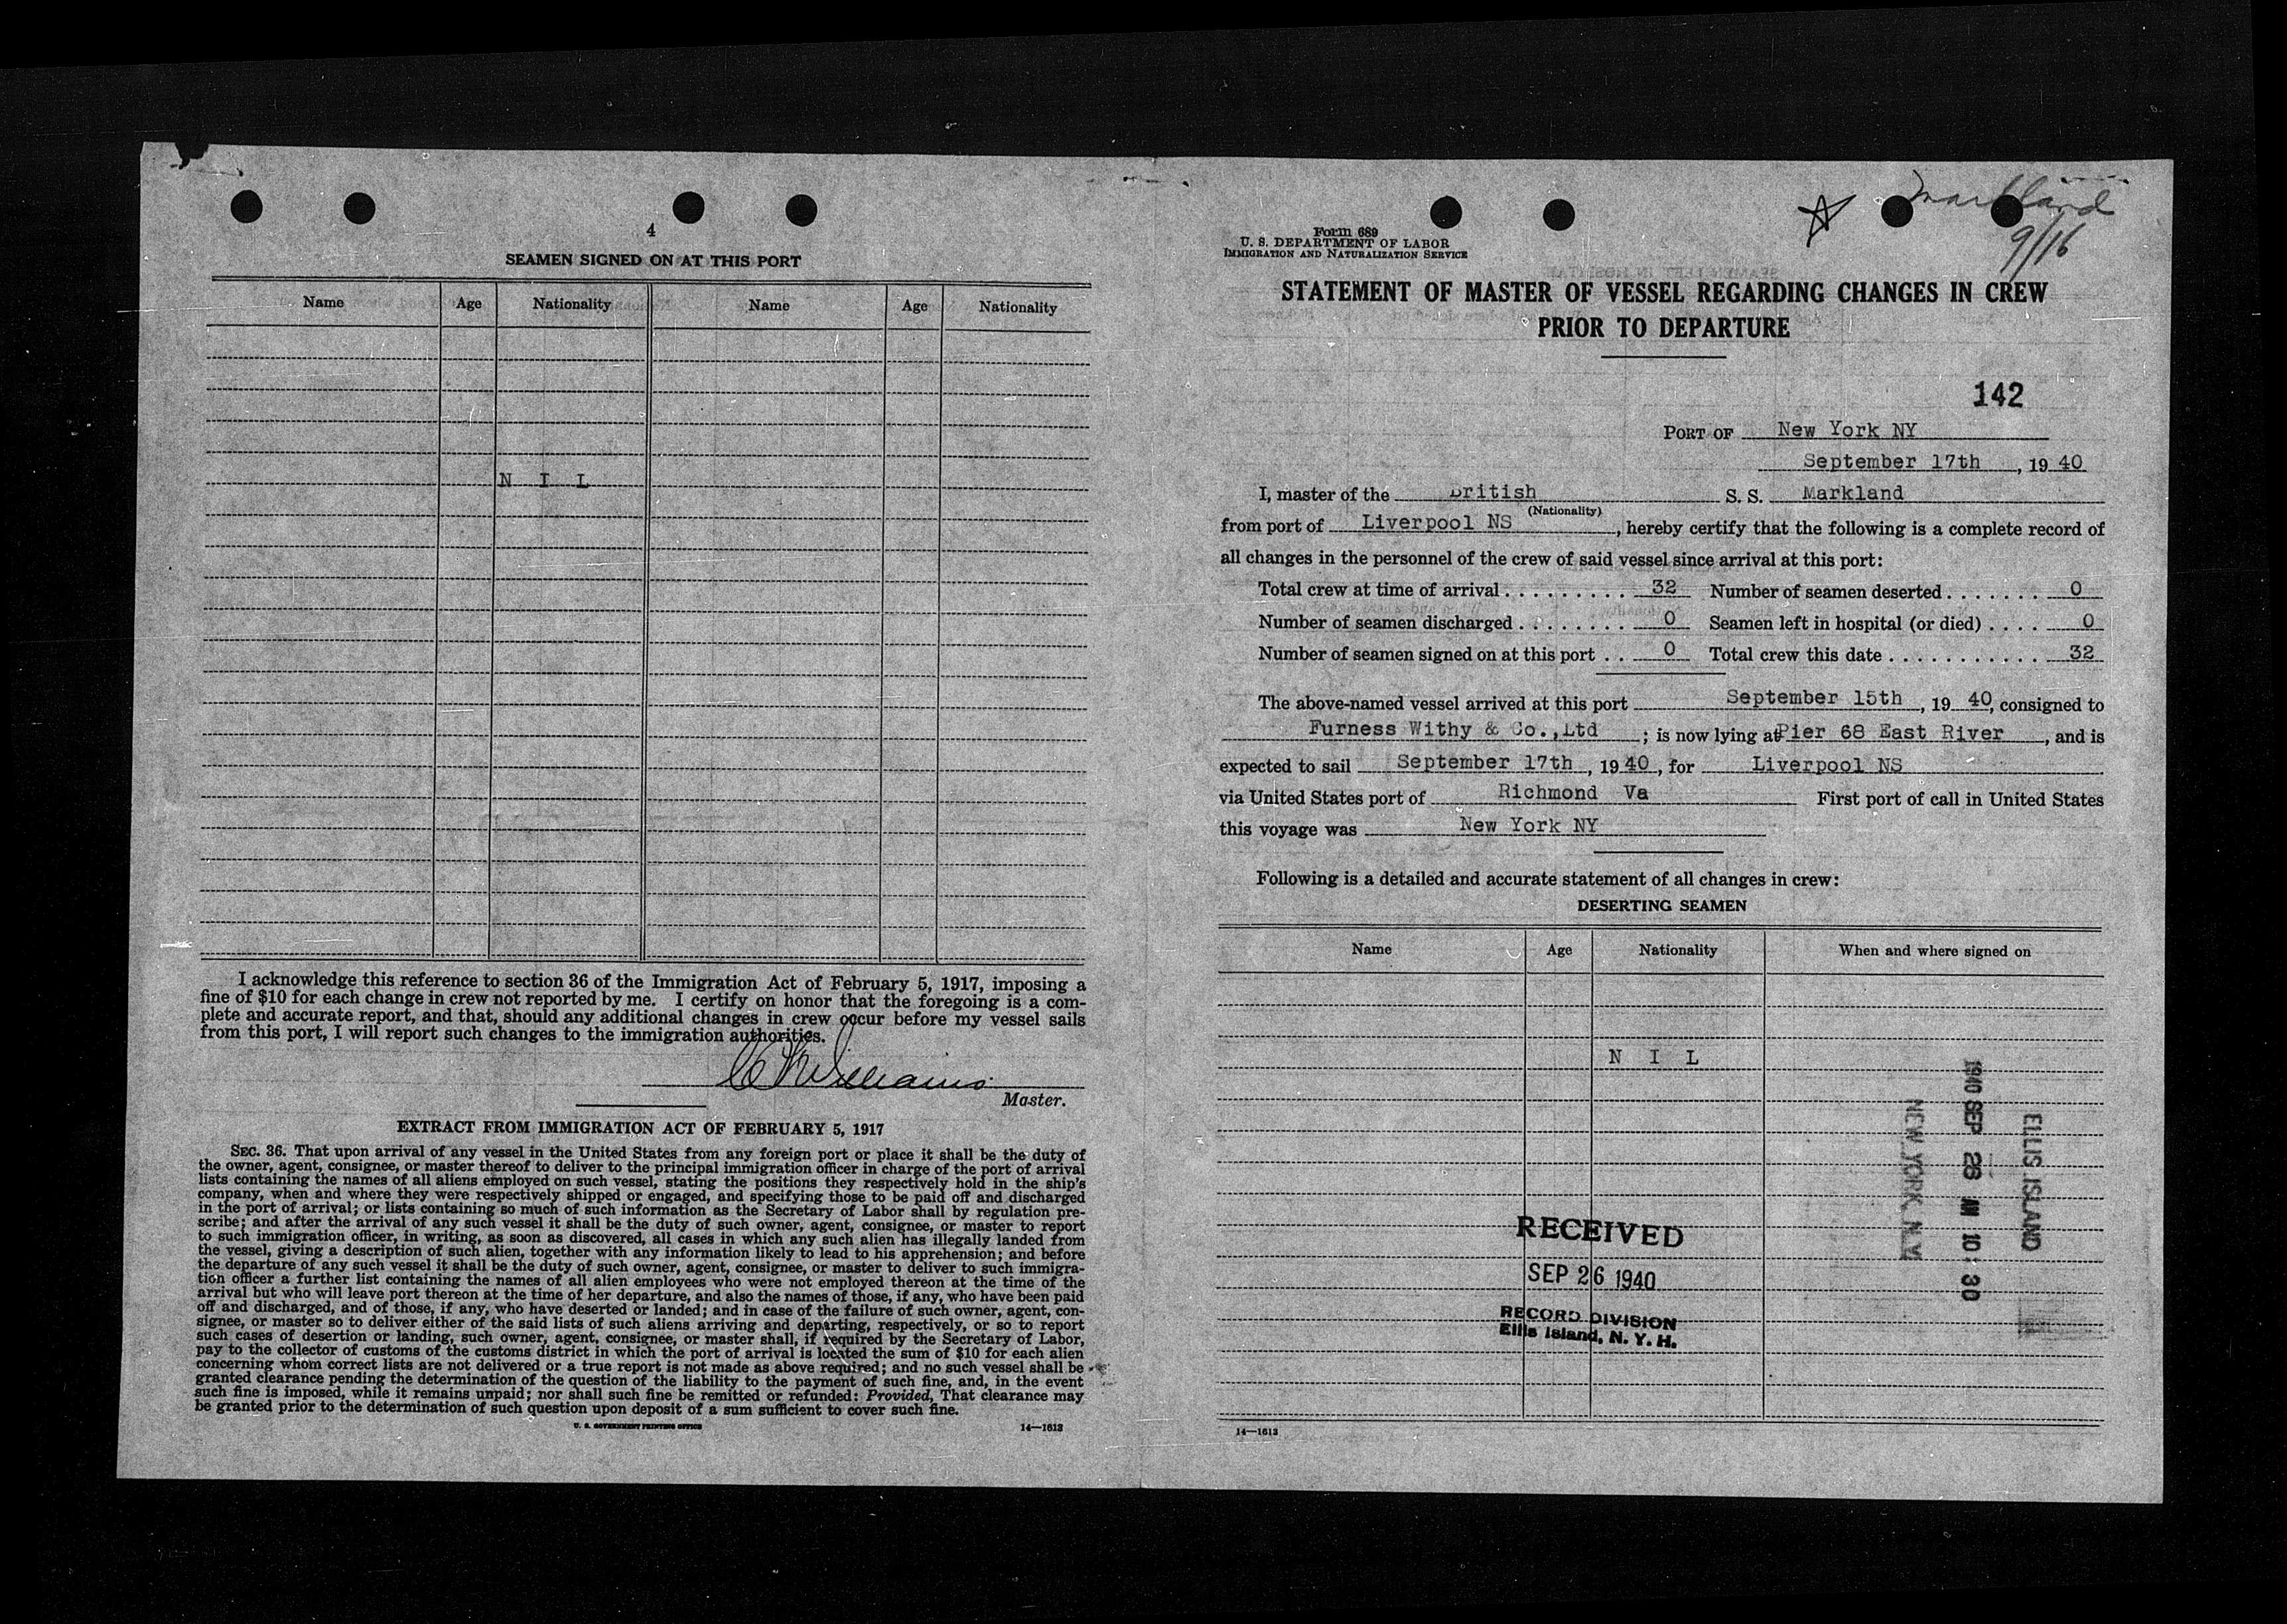 4
SEAMEN SIGNED ON AT THIS PORT
Name Age Nationality Name Age Nationality
N I L
I acknowledge this reference to section 36 of the Immigration Act of February 5, 1917, imposing a
fine of $10 for each change in crew not reported by me. I certify on honor that the foregoing is a com-
plete and accurate report, and that, should any additional changes in crew occur before my vessel sails
from this port, I will report such changes to the immigration authorities.
Williams
Master.
EXTRACT FROM IMMIGRATION ACT OF FEBRUARY 5, 1917
SEC. 36. That upon arrival of any vessel in the United States from any foreign port or place it shall be the duty of
the owner, agent, consignee, or master thereof to deliver to the principal immigration officer in charge of the port of arrival
lists containing the names of all aliens employed on such vessel, stating the positions they respectively hold in the ship's
company, when and where they were respectively shipped or engaged, and specifying those to be paid off and discharged
in the port of arrival; or lists containing so much of such information as the Secretary of Labor shall by regulation pre-
scribe; and after the arrival of any such vessel it shall be the duty of such owner, agent, consignee, or master to report
to such immigration officer, in writing, as soon as discovered, all cases in which any such alien has illegally landed from
the vessel, giving a description of such alien, together with any information likely to lead to his apprehension; and before
the departure of any such vessel it shall be the duty of such owner, agent, consignee, or master to deliver to such immigra-
tion officer a further list containing the names of all alien employees who were not employed thereon at the time of the
arrival but who will leave port thereon at the time of her departure, and also the names of those, if any, who have been paid
off and discharged, and of those, if any, who have deserted or landed; and in case of the failure of such owner, agent, con-
signee, or master so to deliver either of the said lists of such aliens arriving and departing, respectively, or so to report
such cases of desertion or landing, such owner, agent, consignee, or master shall, if required by the Secretary of Labor,
pay to the collector of customs of the customs district in which the port of arrival is located the sum of $10 for each alien
concerning whom correct lists are not delivered or a true report is not made as above required; and no such vessel shall be
granted clearance pending the determination of the question of the liability to the payment of such fine, and, in the event
such fine is imposed, while it remains unpaid; nor shall such fine be remitted or refunded: Provided, That clearance may
be granted prior to the determination of such question upon deposit of a sum sufficient to cover such fine.
U. S. GOVERNMENT PRINTING OFFICE 14—1613
Markland
9/16
Form 689
U. S. DEPARTMENT OF LABOR
IMMIGRATION AND NATURALIZATION SERVICE
STATEMENT OF MASTER OF VESSEL REGARDING CHANGES IN CREW
PRIOR TO DEPARTURE
142
PORT OF New York NY
September 17th, 19 40
I, master of the British S. S. Markland
(Nationality)
from port of Liverpool NS, hereby certify that the following is a complete record of
all changes in the personnel of the crew of said vessel since arrival at this port:
Total crew at time of arrival . . . . . . . . . 32 Number of seamen deserted . . . . . . . 0
Number of seamen discharged . . . . . . . . 0 Seamen left in hospital (or died) . . . . 0
Number of seamen signed on at this port . . 0 Total crew this date . . . . . . . . . . . . 32
The above-named vessel arrived at this port September 15th, 19 40, consigned to
Furness Withy & Co.,Ltd ; is now lying at Pier 68 East River, and is
expected to sail September 17th, 19 40, for Liverpool NS
via United States port of Richmond Va First port of call in United States
this voyage was New York NY
Following is a detailed and accurate statement of all changes in crew:
DESERTING SEAMEN
Name Age Nationality When and where signed on
N I L
RECEIVED
SEP 26 1940
RECORD DIVISION
Ellis Island, N. Y. H.
ELLIS ISLAND
1940 SEP 26 AM 10:30
NEW YORK, N.Y.
14—1613